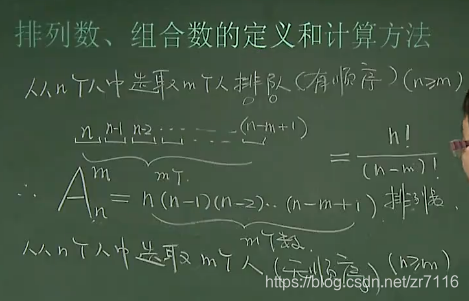 排列数、组合数的定义和计算方法
从n个人中选取m个人排队(有顺序)(n≥m)
n n-1 n-2 ... ... (n-m+1)
m个
= n! / (n-m)!
∴ A_n^m = n(n-1)(n-2)··(n-m+1) 排列数
m个数
从n个人中选取m个人(无顺序)(n≥m)
https://blog.csdn.net/zr7116